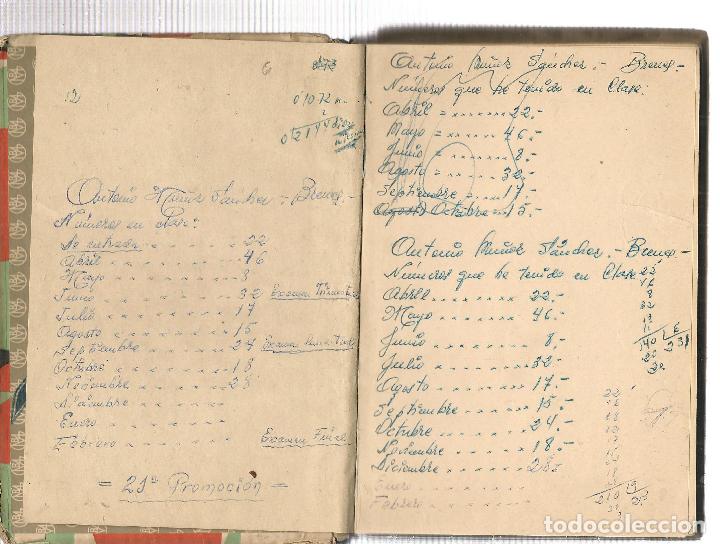 6
12
01072
2
Antonio Muñoz Sánchez.- Brenes.-
Números en clase:-
22
Abril - - - - 46
Mayo - - - - 8
Junio - - - - 32 Examen Trimestral
Julio - - - - 17
Agosto - - - - 15
Septiembre - - - - 24 Examen
Octubre - - - - 18
Noviembre - - - - 28
Diciembre - - - -
Enero - - - -
Febrero - - - - Examen Final
= 21ª Promoción =
Antonio Muñoz Sánchez.- Brenes.-
Números que he tenido en Clase:
Abril = - - - - 22.-
Mayo = - - - - 46.-
Junio = - - - - 8.-
Agosto = - - - - 32.-
Septiembre = - - 17.-
Agosto Octubre = - - 15.-
Antonio Muñoz Sánchez.- Brenes.-
Números que he tenido en Clase
Abril - - - - 22.-
Mayo - - - - 46.-
Junio - - - - 8.-
Julio - - - - 32.-
Agosto - - - - 17.-
Septiembre - - - - 15.-
Octubre - - - - 24.-
Noviembre - - - - 18.-
Diciembre - - - - 28.-
Enero - - - -
Febrero - - - -
todocoleccion